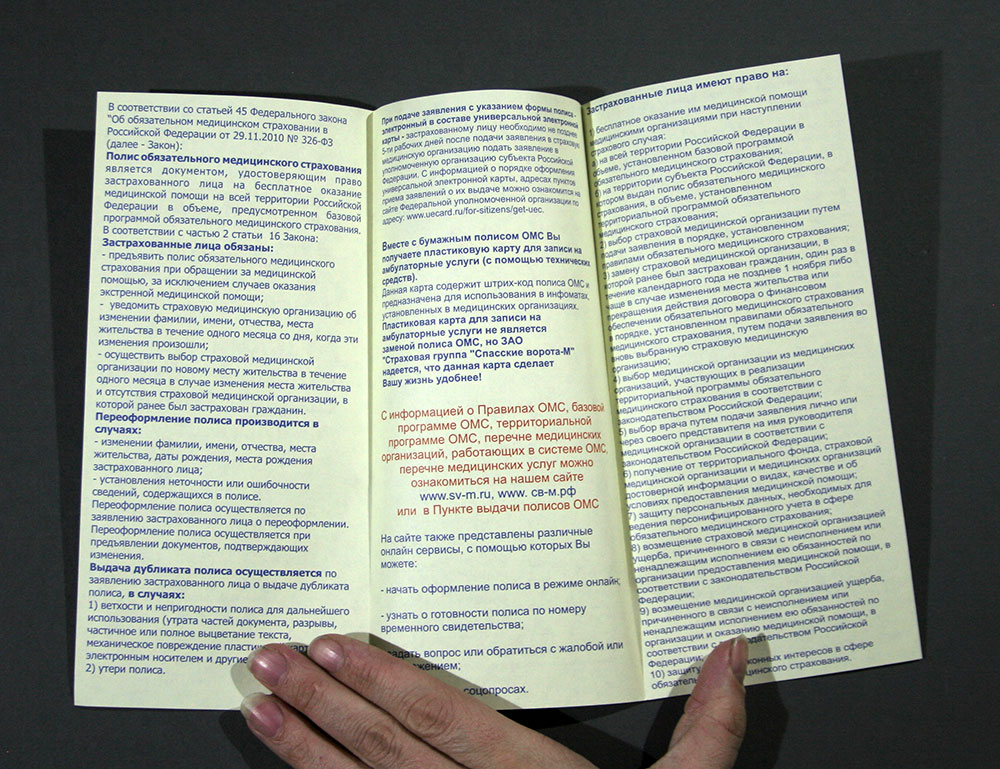 В соответствии со статьей 45 Федерального закона
"Об обязательном медицинском страховании в
Российской Федерации от 29.11.2010 № 326-ФЗ
(далее - Закон):
Полис обязательного медицинского страхования
является документом, удостоверяющим право
застрахованного лица на бесплатное оказание
медицинской помощи на всей территории Российской
Федерации в объеме, предусмотренном базовой
программой обязательного медицинского страхования.
В соответствии с частью 2 статьи 16 Закона:
Застрахованные лица обязаны:
- предъявить полис обязательного медицинского
страхования при обращении за медицинской
помощью, за исключением случаев оказания
экстренной медицинской помощи;
- уведомить страховую медицинскую организацию об
изменении фамилии, имени, отчества, места
жительства в течение одного месяца со дня, когда эти
изменения произошли;
- осуществить выбор страховой медицинской
организации по новому месту жительства в течение
одного месяца в случае изменения места жительства
и отсутствия страховой медицинской организации, в
которой ранее был застрахован гражданин.
Переоформление полиса производится в
случаях:
- изменении фамилии, имени, отчества, места
жительства, даты рождения, места рождения
застрахованного лица;
- установления неточности или ошибочности
сведений, содержащихся в полисе.
Переоформление полиса осуществляется по
заявлению застрахованного лица о переоформлении.
Переоформление полиса осуществляется при
предъявлении документов, подтверждающих
изменения.
Выдача дубликата полиса осуществляется по
заявлению застрахованного лица о выдаче дубликата
полиса, в случаях:
1) ветхости и непригодности полиса для дальнейшего
использования (утрата частей документа, разрывы,
частичное или полное выцветание текста,
механическое повреждение
электронным носителем и другие
2) утери полиса.
При подаче заявления с указанием формы полиса -
электронный в составе универсальной электронной
карты - застрахованному лицу необходимо не позднее
5-ти рабочих дней после подачи заявления в страховую
медицинскую организацию подать заявление в
уполномоченную организацию субъекта Российской
Федерации. С информацией о порядке оформления
универсальной электронной карты, адресах пунктов
приема заявлений о их выдаче можно ознакомиться на
сайте Федеральной уполномоченной организации по
адресу: www.uecard.ru/for-sitizens/get-uec.
Вместе с бумажным полисом ОМС Вы
получаете пластиковую карту для записи на
амбулаторные услуги (с помощью технических
средств).
Данная карта содержит штрих-код полиса ОМС и
предназначена для использования в инфоматах,
установленных в медицинских организациях.
Пластиковая карта для записи на
амбулаторные услуги не является
заменой полиса ОМС, но ЗАО
"Страховая группа "Спасские ворота-М"
надеется, что данная карта сделает
Вашу жизнь удобнее!
С информацией о Правилах ОМС, базовой
программе ОМС, территориальной
программе ОМС, перечне медицинских
организаций, работающих в системе ОМС,
перечне медицинских услуг можно
ознакомиться на нашем сайте
www.sv-m.ru, www. св-м.рф
или в Пункте выдачи полисов ОМС
На сайте также представлены различные
онлайн сервисы, с помощью которых Вы
можете:
- начать оформление полиса в режиме онлайн;
- узнать о готовности полиса по номеру
временного свидетельства;
вопрос или обратиться с жалобой или
соцопросах.
Застрахованные лица имеют право на:
1) бесплатное оказание им медицинской помощи
медицинскими организациями при наступлении
страхового случая:
а) на всей территории Российской Федерации в
объеме, установленном базовой программой
обязательного медицинского страхования;
б) на территории субъекта Российской Федерации, в
котором выдан полис обязательного медицинского
страхования, в объеме, установленном
территориальной программой обязательного
медицинского страхования;
2) выбор страховой медицинской организации путем
подачи заявления в порядке, установленном
правилами обязательного медицинского страхования;
3) замену страховой медицинской организации, в
которой ранее был застрахован гражданин, один раз в
течение календарного года не позднее 1 ноября либо
чаще в случае изменения места жительства или
прекращения действия договора о финансовом
обеспечении обязательного медицинского страхования
в порядке, установленном правилами обязательного
медицинского страхования, путем подачи заявления во
вновь выбранную страховую медицинскую
организацию;
4) выбор медицинской организации из медицинских
организаций, участвующих в реализации
территориальной программы обязательного
медицинского страхования в соответствии с
законодательством Российской Федерации;
5) выбор врача путем подачи заявления лично или
через своего представителя на имя руководителя
медицинской организации в соответствии с
законодательством Российской Федерации;
6) получение от территориального фонда, страховой
медицинской организации и медицинских организаций
достоверной информации о видах, качестве и об
условиях предоставления медицинской помощи;
7) защиту персональных данных, необходимых для
ведения персонифицированного учета в сфере
обязательного медицинского страхования;
8) возмещение страховой медицинской организацией
ущерба, причиненного в связи с неисполнением или
ненадлежащим исполнением ею обязанностей по
организации предоставления медицинской помощи, в
соответствии с законодательством Российской
Федерации;
9) возмещение медицинской организацией ущерба,
причиненного в связи с неисполнением или
ненадлежащим исполнением ею обязанностей по
организации и оказанию медицинской помощи, в
соответствии с законодательством Российской
Федерации;
10) защиту законных интересов в сфере
обязательного медицинского страхования.